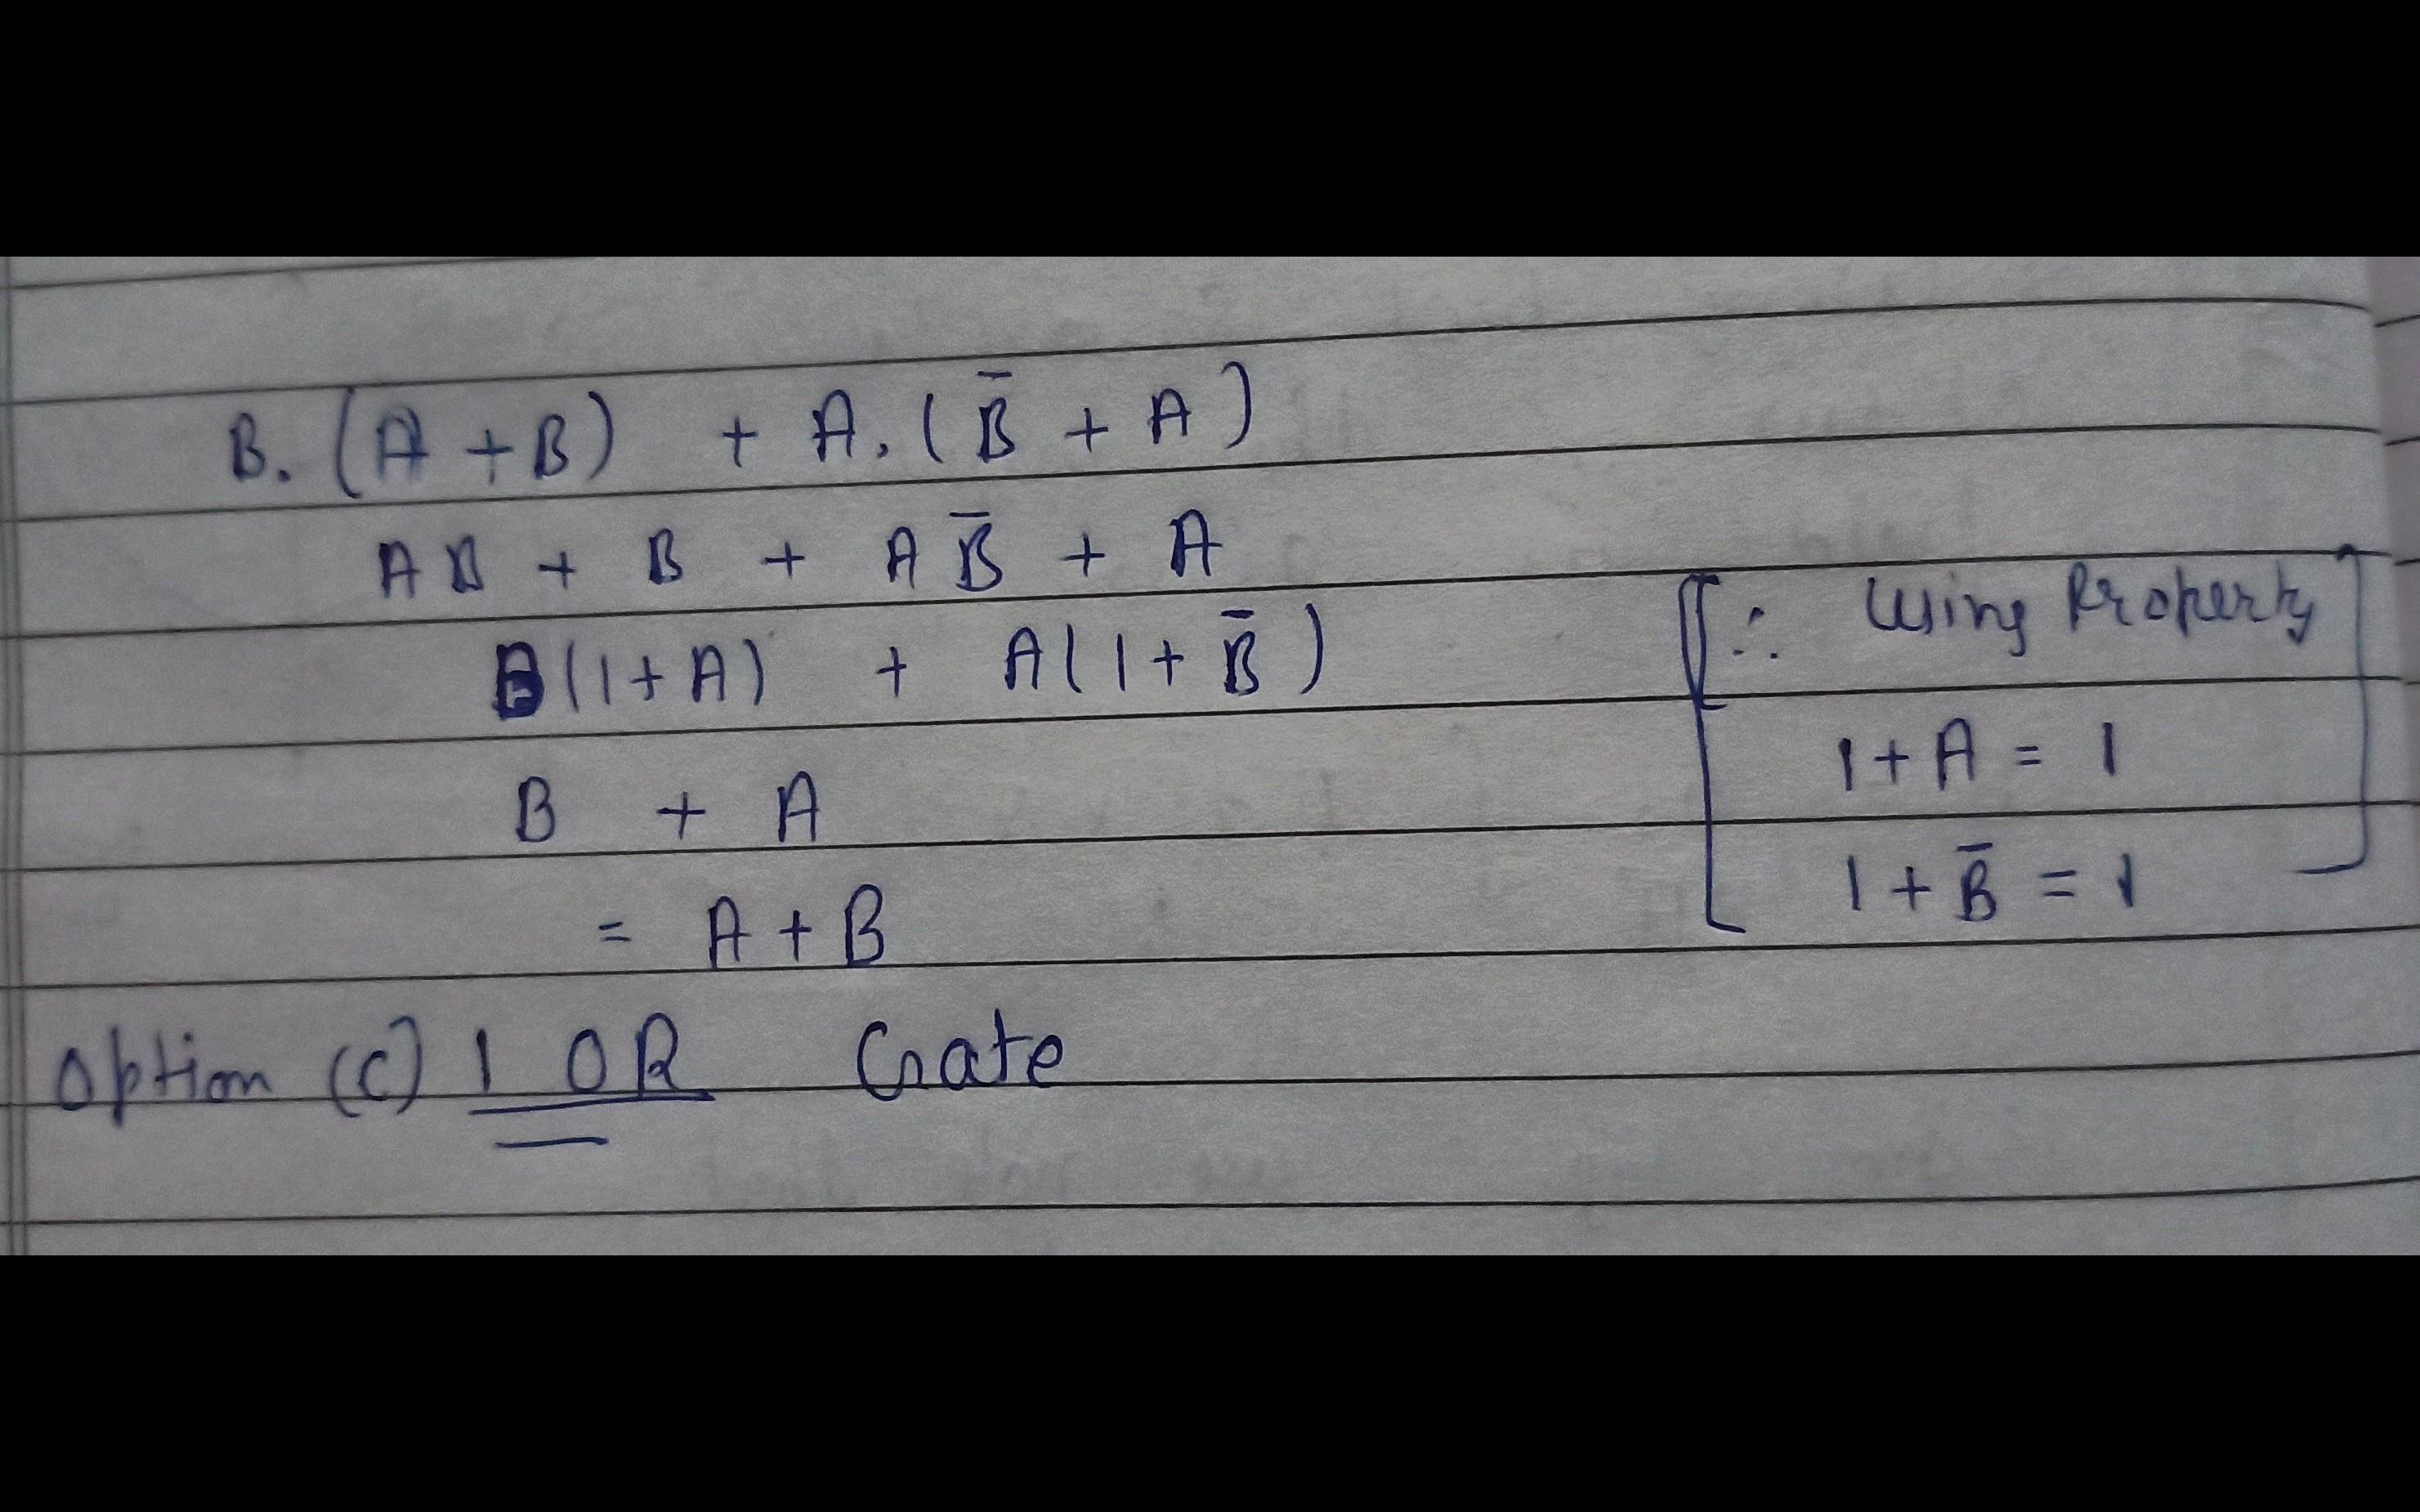 B. (A + B) + A. (B̄ + A)
AB + B + AB̄ + A
B(1+A) + A(1+B̄)
[∴ Using Property
1+A = 1
1+B̄ = 1]
B + A
= A+B
Option (C) 1 OR Gate